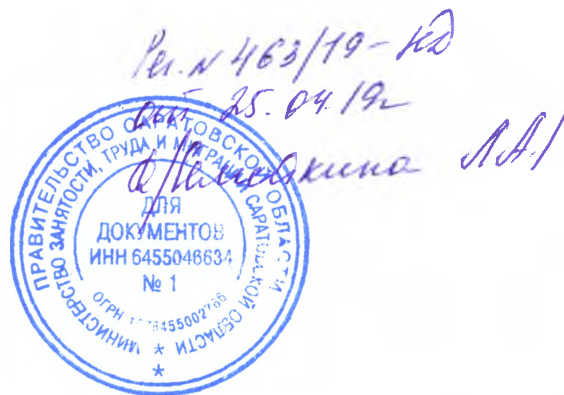 Рег. N 463/19-кд
от 25.04.19г
Л.А/
ПРАВИТЕЛЬСТВО САРАТОВСКОЙ ОБЛАСТИ
МИНИСТЕРСТВО ЗАНЯТОСТИ, ТРУДА И МИГРАЦИИ САРАТОВСКОЙ ОБЛАСТИ
ДЛЯ
ДОКУМЕНТОВ
ИНН 6455046634
№ 1
ОГРН